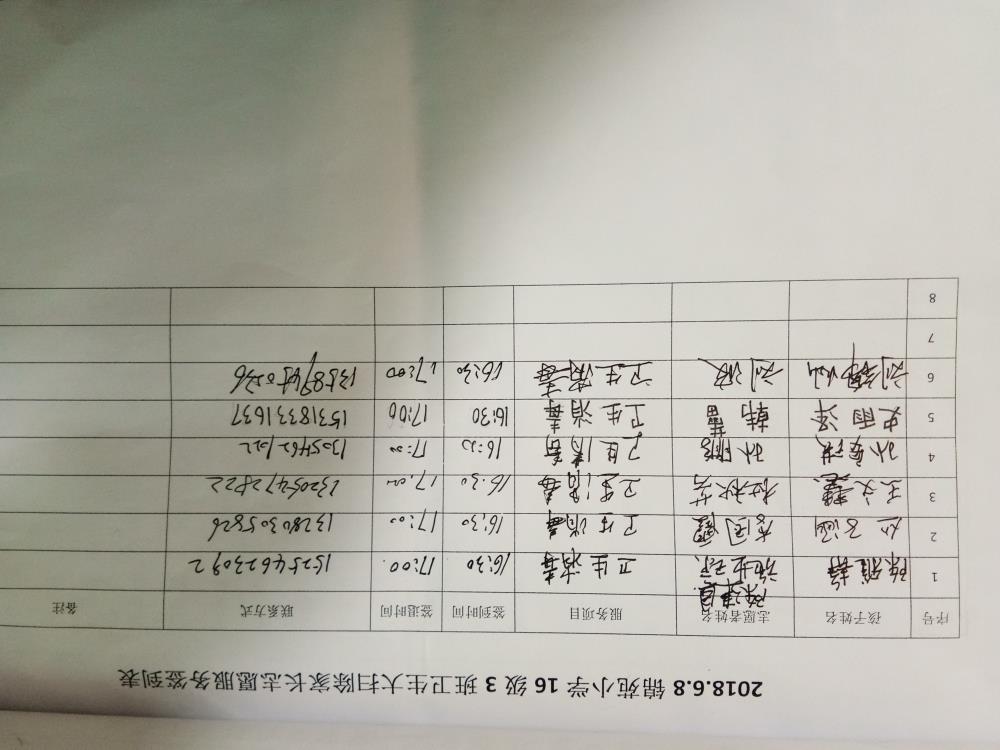 2018.6.8 锦苑小学 16 级 3 班卫生大扫除家长志愿服务签到表
序号 孩子姓名 志愿者姓名 服务项目 签到时间 签退时间 联系方式 备注
1 陈雅静 卫生消毒 16:30 17:00 15254623092
2 16:30 17:00 13280305826
3 王文慧 杜秋芳 卫生消毒 16:30 17:00 13205472822
4 17:00
5 史雨泽 韩蕾 卫生消毒 16:30 17:00 15318331637
6 刘 刘波 卫生消毒 16:30 17:00
7
8